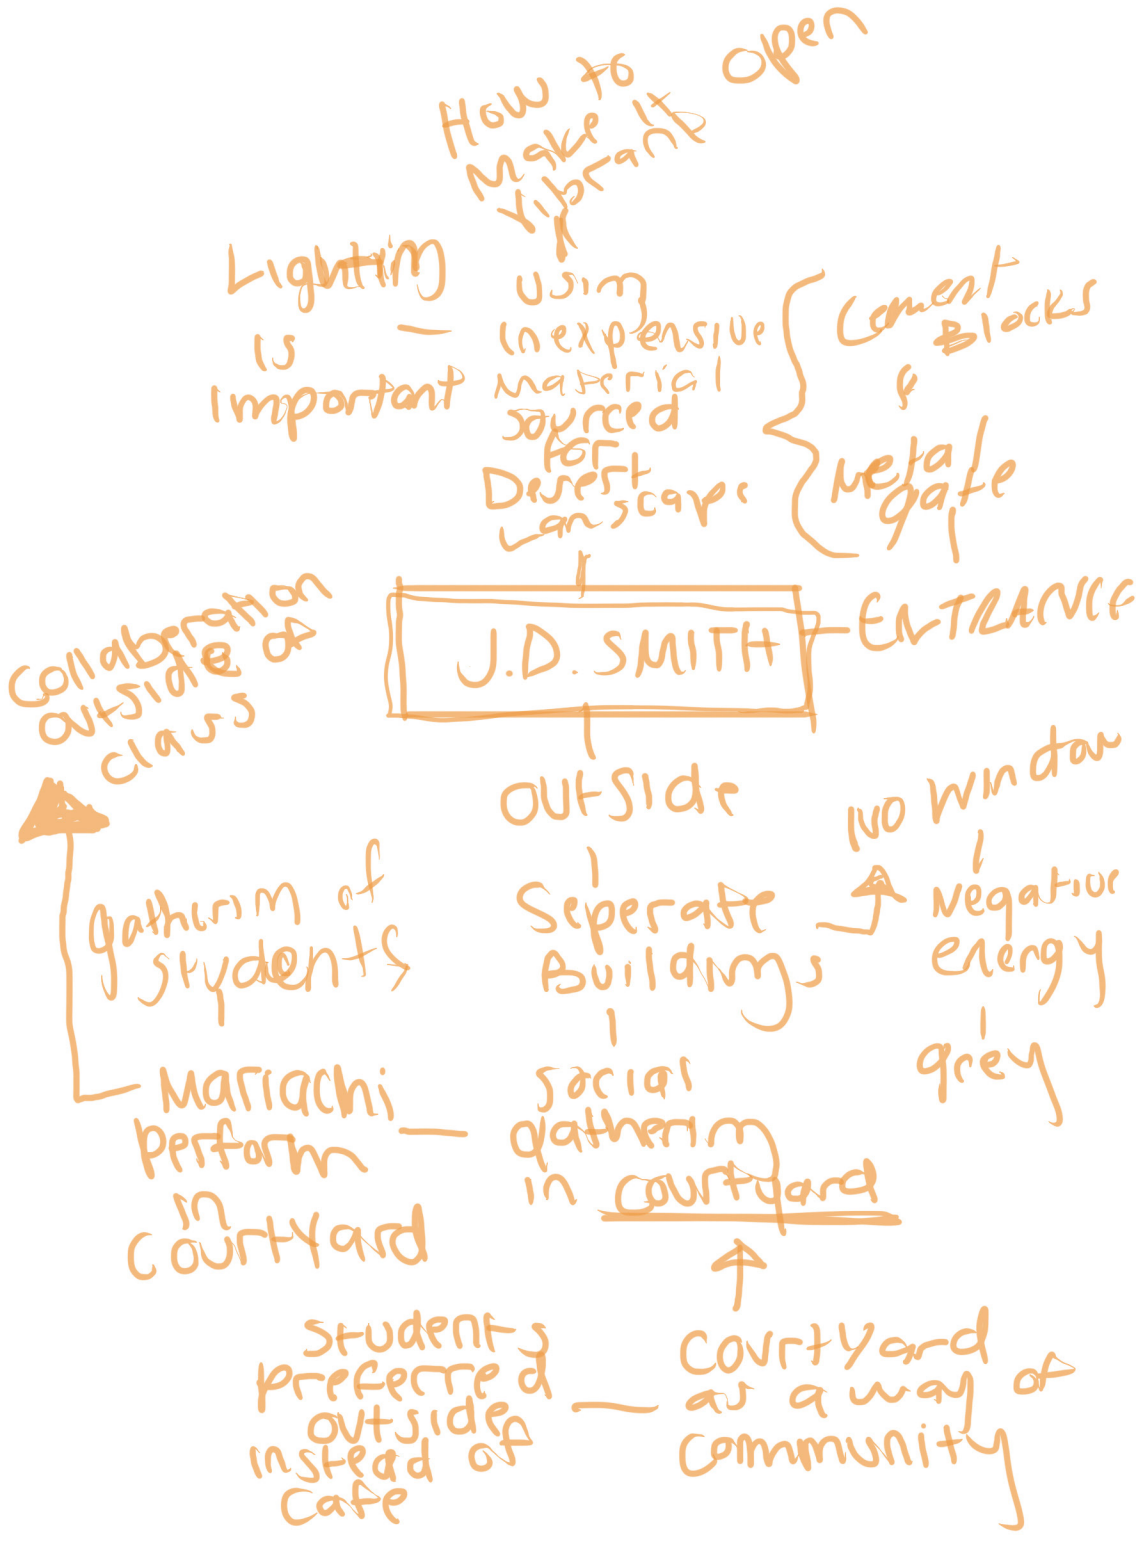 How to
Make it
vibrant
open
Lighting
is
important
using
inexpensive
material
sourced
for
Desert
Lanscape
Cement
Blocks
&
Metal
gate
J.D. SMITH
ENTRANCE
Collaberation
outside of
class
outside
Seperate
Buildings
No window
Negative
energy
grey
gathering of
students
Mariachi
perform
in
courtyard
social
gathering
in courtyard
Students
preferred
outside
instead of
Cafe
Courtyard
as a way of
community